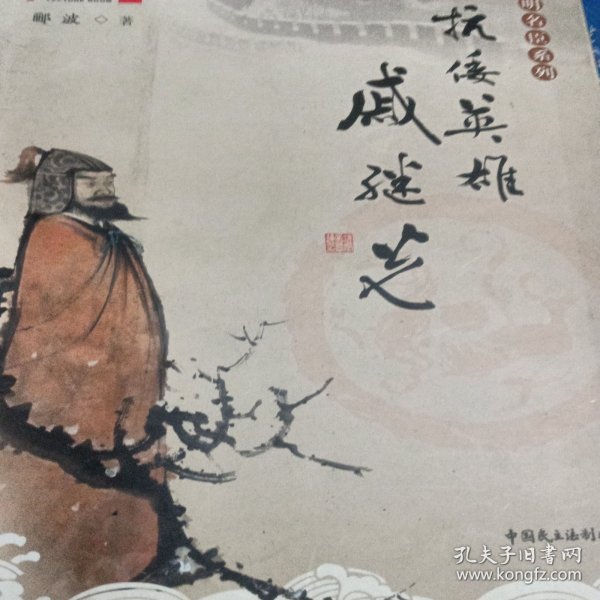 郦波◇著
明名臣系列
抗倭英雄
戚继光
中国民主法制
孔夫子旧书网
www.kongfz.com